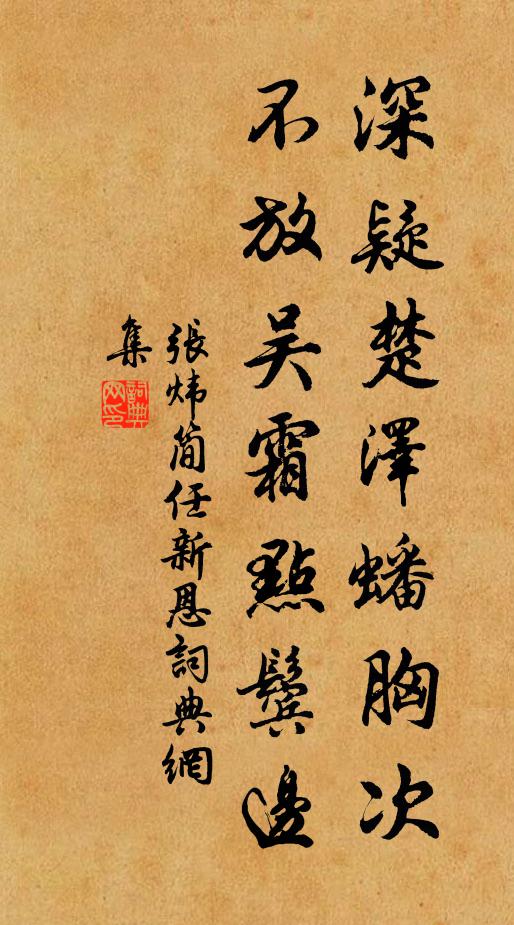 深疑楚澤蟠胸次
不放吴霜點鬢邊
張炜简任新恩詞典網
集
詞典網印